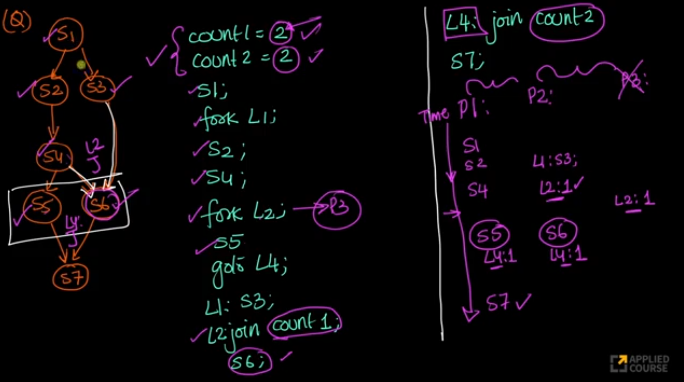 (Q)
S1
S2
S3
S4
L2
J
S5
S6
L4:
J
S7
count1 = 2
count2 = 2
S1;
fork L1;
S2;
S4;
fork L2; → P3
S5
goto L4;
L1: S3;
L2: join count1;
S6;
L4: join count2
S7;
Time P1: P2: P3:
S1
S2 L1: S3;
S4 L2:1
L2:1
S5 S6
L4:1 L4:1
S7
APPLIED
COURSE